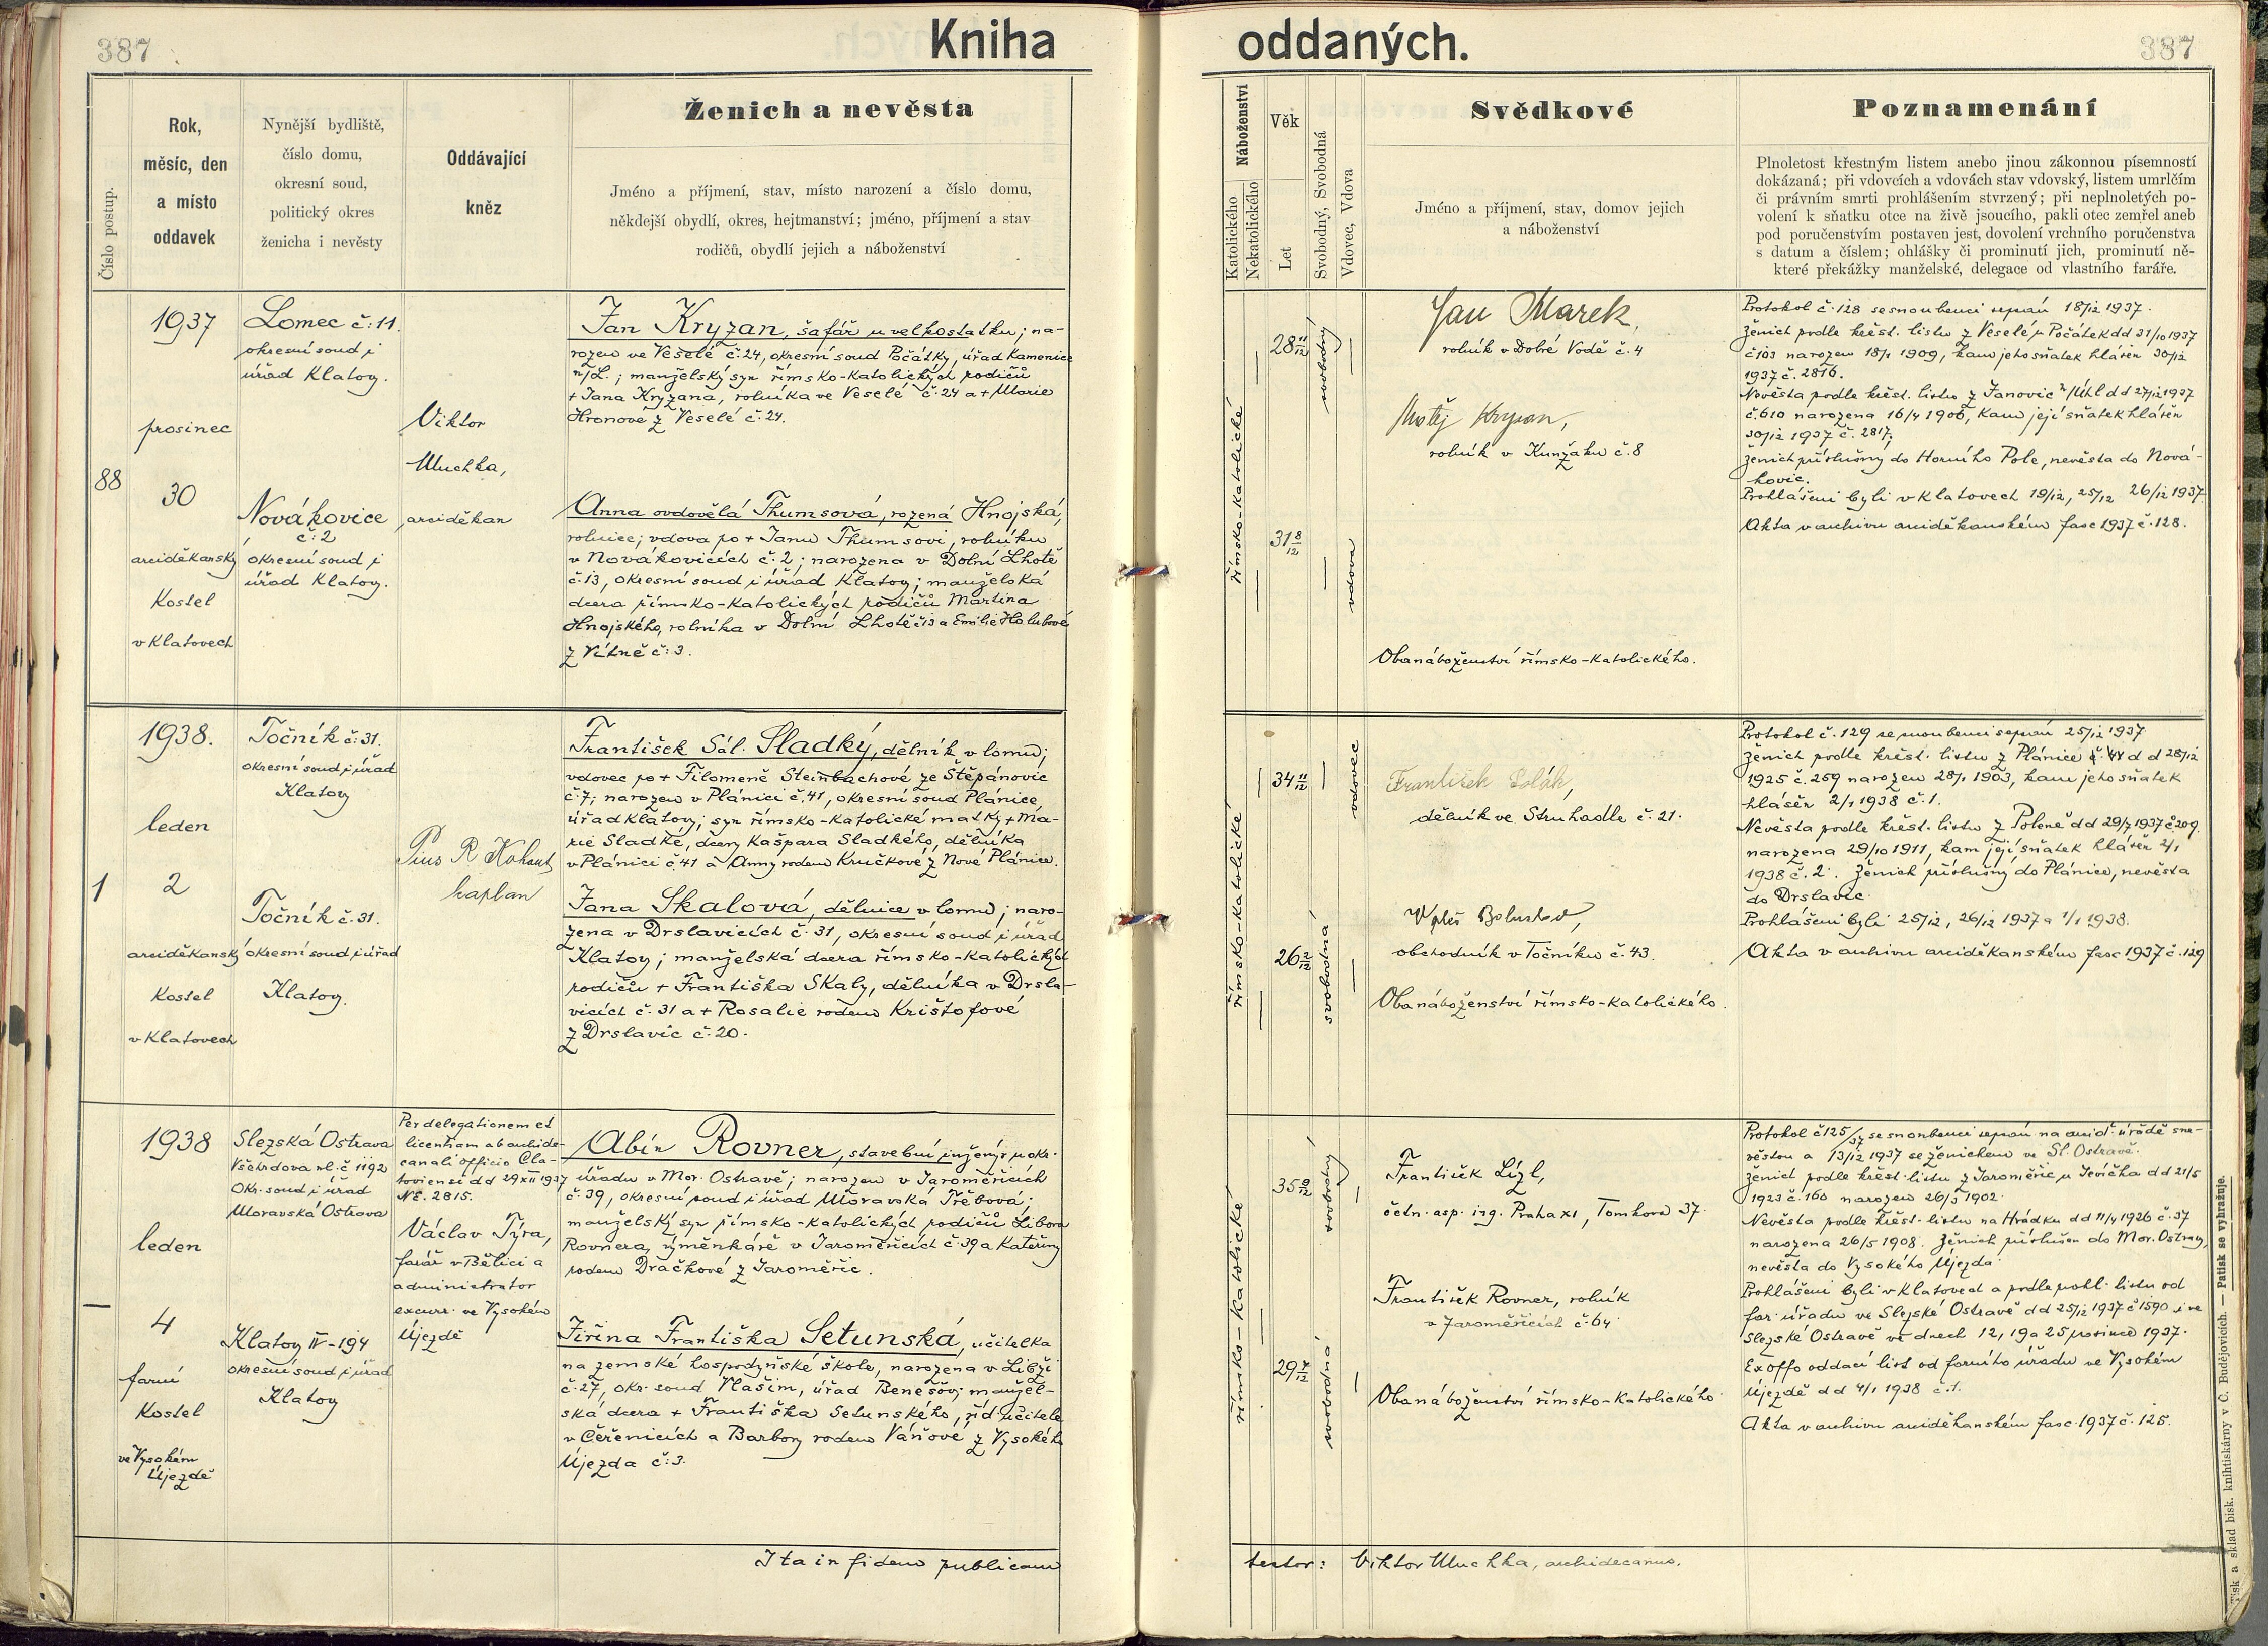 387
Kniha
oddaných.
387
Číslo postup.
Rok,
měsíc, den
a místo
oddavek
Nynější bydliště,
číslo domu,
okresní soud,
politický okres
ženicha i nevěsty
Oddávající
kněz
Ženich a nevěsta
Jméno a příjmení, stav, místo narození a číslo domu,
někdejší obydlí, okres, hejtmanství; jméno, příjmení a stav
rodičů, obydlí jejich a náboženství
Náboženství
Katolického
Nekatolického
Věk
Let
Svobodný, Svobodná
Vdovec, Vdova
Svědkové
Jméno a příjmení, stav, domov jejich
a náboženství
Poznamenání
Plnoletost křestným listem anebo jinou zákonnou písemností
dokázaná; při vdovcích a vdovách stav vdovský, listem umrlčím
či právním smrti prohlášením stvrzený; při neplnoletých po-
volení k sňatku otce na živě jsoucího, pakli otec zemřel aneb
pod poručenstvím postaven jest, dovolení vrchního poručenstva
s datum a číslem; ohlášky či prominutí jich, prominutí ně-
které překážky manželské, delegace od vlastního faráře.
88
1937
prosinec
30
arciděkanský
Kostel
v Klatovech
Lomec č: 11.
okresní soud i
úřad Klatovy.
Novákovice
č: 2
okresní soud i
úřad Klatovy.
Viktor
Muchka,
arciděkan
Jan Kryzan, šafář u velkostatku; na-
rozen ve Veselé č. 24, okresní soud Počátky, úřad Kamenice
n/L.; manželský syn římsko-katolických rodičů
+ Jana Kryzana, rolníka ve Veselé č. 24 a + Marie
Hronové z Veselé č. 24.
Anna ovdovělá Thumsová, rozená Hnojská,
rolnice; vdova po + Janu Thumsovi, rolníku
v Novákovicích č. 2; narozena v Dolní Lhotě
č. 13, okresní soud i úřad Klatovy; manželská
dcera římsko-katolických rodičů Martina
Hnojského, rolníka v Dolní Lhotě č 13 a Emilie Holubové
z Vítně č: 3.
římsko-katolické
28 11/12
svobodný
31 8/12
vdova
Jan Marek,
rolník v Dobré Vodě č. 4
Matěj Kryzan,
rolník v Kunžaku č. 8
Oba náboženství římsko-katolického.
Protokol č. 128 se snoubenci sepsán 18/12 1937.
Ženich podle křest. listu z Veselé u Počátek dd 31/10 1937
č 103 narozen 18/1 1909, kam jeho sňatek hlášen 30/12
1937 č. 2816.
Nevěsta podle křest. listu z Janovic n/Úhl dd 27/12 1937
č. 610 narozena 16/4 1906, kam její sňatek hlášen
30/12 1937 č. 2817.
Ženich příslušný do Horního Pole, nevěsta do Nová-
kovic.
Prohlášeni byli v Klatovech 19/12, 25/12 26/12 1937.
Akta v archivu arciděkanském fasc 1937 č. 128.
1
1938.
leden
2
arciděkanský
Kostel
v Klatovech
Točník č: 31.
okresní soud i úřad
Klatovy
Točník č. 31.
okresní soud i úřad
Klatovy.
Pius R. Kohout
kaplan
František Sál. Sladký, dělník v lomu;
vdovec po + Filomeně Steinbachové ze Štěpánovic
č. 7; narozen v Plánici č. 41, okresní soud Plánice,
úřad Klatovy; syn římsko-katolické matky + Ma-
rie Sladké, dcery Kašpara Sladkého, dělníka
v Plánici č. 41 a Anny rodem Kručkové z Nové Plánice.
Jana Skalová, dělnice v lomu; naro-
zena v Drslavicích č. 31, okresní soud i úřad
Klatovy; manželská dcera římsko-katolických
rodičů + Františka Skaly, dělníka v Drsla-
vicích č. 31 a + Rosalie rodem Krištofové
z Drslavic č. 20.
římsko-katolické
34 11/12
vdovec
26 2/12
svobodná
František Polák,
dělník ve Struhadle č. 21.
obchodník v Točníku č. 43.
Oba náboženství římsko-katolického.
Protokol č. 129 se snoubenci sepsán 25/12 1937
Ženich podle křest. listu z Plánice dd 28/12
1925 č. 259 narozen 28/1 1903, kam jeho sňatek
hlášen 2/1 1938 č. 1.
Nevěsta podle křest. listu z Poleně dd 29/7 1937 č 209.
narozena 29/10 1911, kam její sňatek hlášen 2/1
1938 č. 2. Ženich příslušný do Plánice, nevěsta
do Drslavic.
Prohlášeni byli 25/12, 26/12 1937 a 1/1 1938.
Akta v archivu arciděkanském fasc 1937 č. 129
—
1938
leden
4
farní
Kostel
ve Vysokém
Újezdě
Slezská Ostrava
Všehrdova ul. č 1192
Okr. soud i úřad
Moravská Ostrava
Klatovy IV - 194
okresní soud i úřad
Klatovy
Per delegationem et
licentiam ab archide-
canali officio Cla-
toviensi dd 29 XII 1937
NE. 2815.
Václav Týra,
farář v Bělici a
administrator
excurr. ve Vysokém
Újezdě
Albín Rovner, stavební inženýr u okr.
úřadu v Mor. Ostravě; narozen v Jaroměřicích
č. 39, okresní soud i úřad Moravská Třebová;
manželský syn římsko-katolických rodičů Libora
Rovnera, výměnkáře v Jaroměřicích č. 39 a Kateřiny
rodem Dračkové z Jaroměřic.
Jiřina Františka Setunská, učitelka
na zemské hospodyňské škole, narozena v Libži
č. 27, okr. soud Vlašim, úřad Benešov; manžel-
ská dcera + Františka Setunského, říd. učitele
v Čeřenicích a Barbory rodem Váňové z Vysokého
Újezda č: 3.
římsko-katolické
35 9/12
svobodný
29 7/12
svobodná
František Lízl,
četn. asp. ing. Praha XI, Tomkova 37.
František Rovner, rolník
v Jaroměřicích č. 64
Oba náboženství římsko-katolického.
Protokol č 125/37 se snoubenci sepsán na arcid. úřadě s ne-
věstou a 13/12 1937 se ženichem ve Sl. Ostravě.
Ženich podle křest. listu z Jaroměřic u Jevíčka dd 21/5
1923 č. 160 narozen 26/3 1902.
Nevěsta podle křest. listu na Hrádku dd 11/4 1926 č. 37
narozena 26/5 1908. Ženich příslušen do Mor. Ostravy,
nevěsta do Vysokého Újezda.
Prohlášeni byli v Klatovech a podle prohl. listu od
far. úřadu ve Slezské Ostravě dd 25/12 1937 č 1590 i ve
Slezské Ostravě ve dnech 12, 19 a 25 prosince 1937.
Ex offo oddací list od farního úřadu ve Vysokém
Újezdě dd 4/1 1938 č. 1.
Akta v archivu arciděkanském fasc. 1937 č. 125.
Ita in fidem publicam
testor: Viktor Muchka, archidecanus.
Tisk a sklad bisk. knihtiskárny v Č. Budějovicích. — Patisk se vyhražuje.